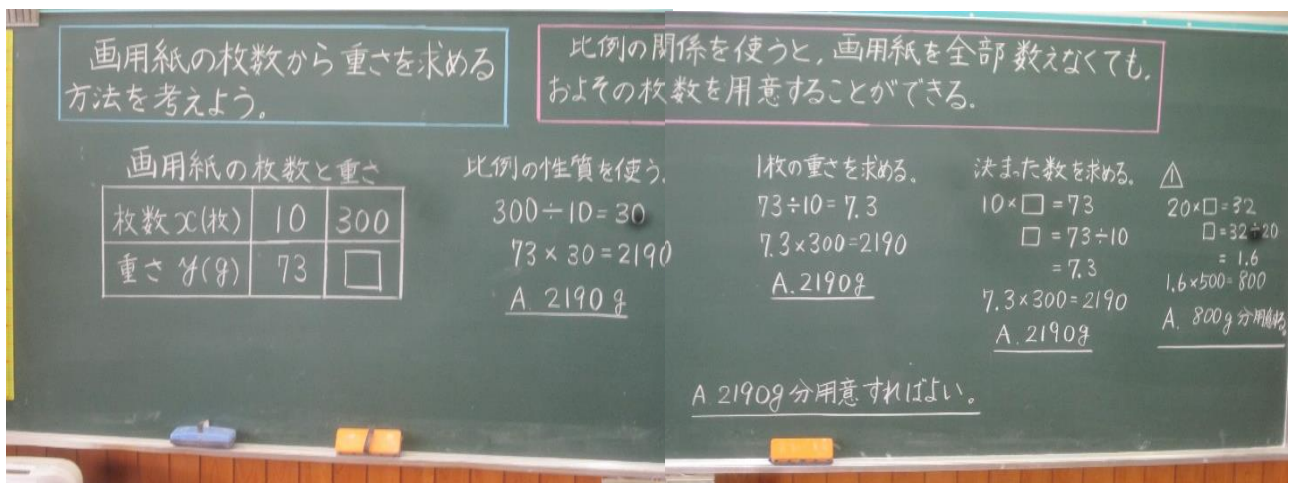 画用紙の枚数から重さを求める
方法を考えよう。
比例の関係を使うと,画用紙を全部数えなくても,
およその枚数を用意することができる.
画用紙の枚数と重さ
枚数x(枚) 10 300
重さy(g) 73 □
比例の性質を使う.
300÷10=30
73×30=2190
A. 2190g
1枚の重さを求める。
73÷10=7.3
7.3×300=2190
A. 2190g
決まった数を求める。
10×□=73
□=73÷10
=7.3
7.3×300=2190
A. 2190g
⚠
20×□=32
□=32÷20
=1.6
1.6×500=800
A. 800g分用意する。
A 2190g分用意すればよい。